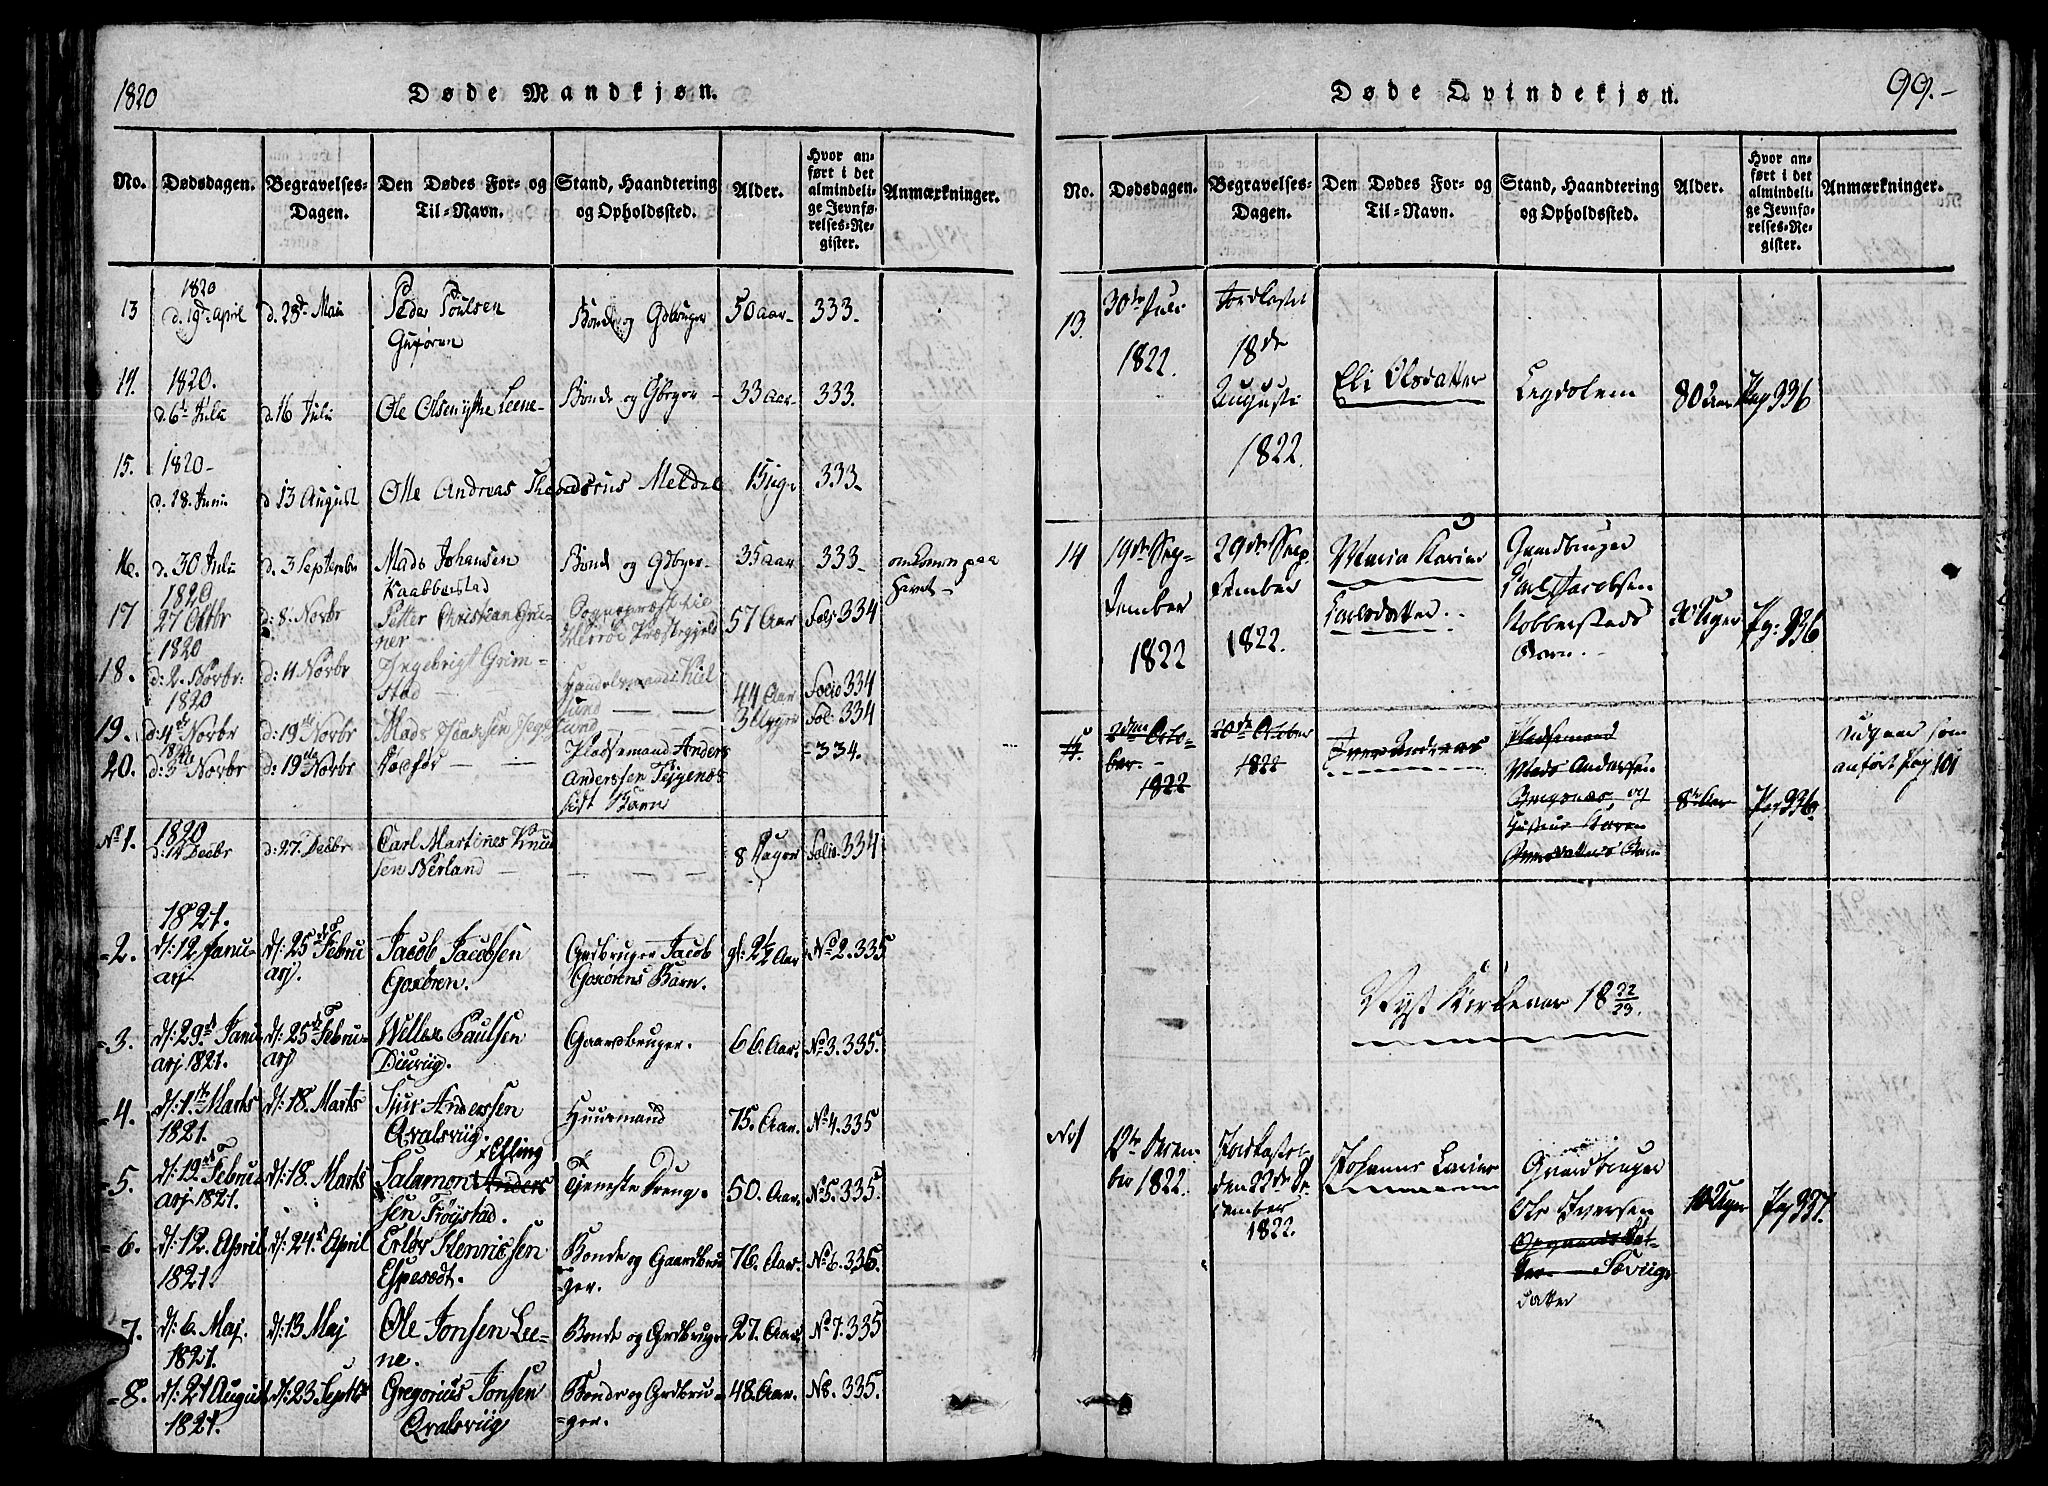 1820
Døde Mandkjøn.
No.
Dødsdagen.
Begravelses-
Dagen.
Den Dødes For- og
Til-Navn.
Stand, Haandtering
og Opholdssted.
Alder.
Hvor an-
ført i det
almindeli-
ge Jevnfø-
relses-Re-
gister.
Anmærkninger.
13 1820
d. 19de April d. 28de Mai Peder Poulsen Bonde og Gdbruger 50 Aar 333.
14. 1820.
d. 6te Julii d. 16 Julii Ole Olsen Leene Bonde og 33 Aar 333.
15. 1820
d. 28. Junii d. 13 August Olle Andreas Meldal 15 333
16. d. 30 Julii d. 3 September Mads Johansen Bonde og Gdbger 35 Aar 333 omkommen paa
1820 Havet
17 27 Octbr d: 8. Novbr Petter Christian Gru-
ner 57 Aar Fol: 334
1820
18. d: 2. Novbr. d: 11 Novbr Ingebrigt Grim-
stad Handelsmand i Kiel
sund 44 Aar Folio 334
1820
19. d: 4de Novbr d: 19de Novbr Mads 3 Uger Fol: 334
20. 1820
d: 5te Novbr d: 19de Novbr Dødfør Pladsemand Anders
Anderssen Teigenæs
sidt Barn = 334.
No 1. 1820
d: 14 Decbr d: 27. Decbr Carl Martines Knud
sen Nerland 8 Dager Folio 334
1821.
= 2. d/: 12 Janu-
arj d/: 25de Febru
arj. Jacob Jacobsen
Goxören. Grdbruger Jacob
Goxörens Barn. gl: 2 1/2 Aar No 2. 335
= 3. d/: 29de Janu
arj 1821. d/: 25de Febru-
arj Weller Paulsen
Diurviig. Gaardbruger. 66. Aar. No 3. 335.
= 4. d/: 1te Marts
1821. d/: 18. Marts Sjur Anderssen
Qvalsviig. Huusmand 75. Aar. No 4. 335
= 5. d/: 12de Febru
arj 1821. d/: 18. Marts Elling
Salamon Anders
sen Frøystad. Tjeneste Dreng. 50. Aar. No 5. 335.
= 6. d/: 12. April
1821. d/: 24de April Erlör Henrissen
Espesædt. Bonde og Gaardbru
ger. 76. Aar. No 6. 335.
= 7. d/: 6. Maj.
1821. d/: 13 Maj Ole Jonsen Lee-
ne. Bonde og Grdbruger 27. Aar. No 7. 335
= 8. d/: 21 August
1821. d/: 23. Septbr Gregorius Jonsen
Qvalsviig Bonde og Grdbru-
ger. 48. Aar. N8. 335.
Døde Qvindekjøn.
99.-
No.
Dødsdagen.
Begravelses-
Dagen.
Den Dødes For- og
Til-Navn.
Stand, Haandtering
og Opholdssted.
Alder.
Hvor an-
ført i det
almindeli-
ge Jevnfø-
relses-Re-
gister.
Anmærkninger.
13. 30te Juli
1822. Jordfæstet
18de
Augusti
1822. Eli Olsdatter Legdelem 80 Aar Pag 336
14 19de Sep-
tember
1822 29de Sep-
tember
1822. Maria Karine
Carlsdatter. Gaardbruger
Carl Jacobsen
Kobberstads
Barn. 30 Uger Pg: 336
15. Octo-
ber
1822 20de October
1822 Iver Andreas Pladsemand
Mads Andersen
og
8te Aar Pag 336. Udgaar som
anført Pag 101
Nyt Kirkeaar 18 22/23.
No 1 12te Decem-
ber 1822. Jordfæstet
den 22de De-
cember
1822. Johanne Lavine Gaardbruger
Ole Iversen
Sæviigs
datter 10 Uger Pag 337.